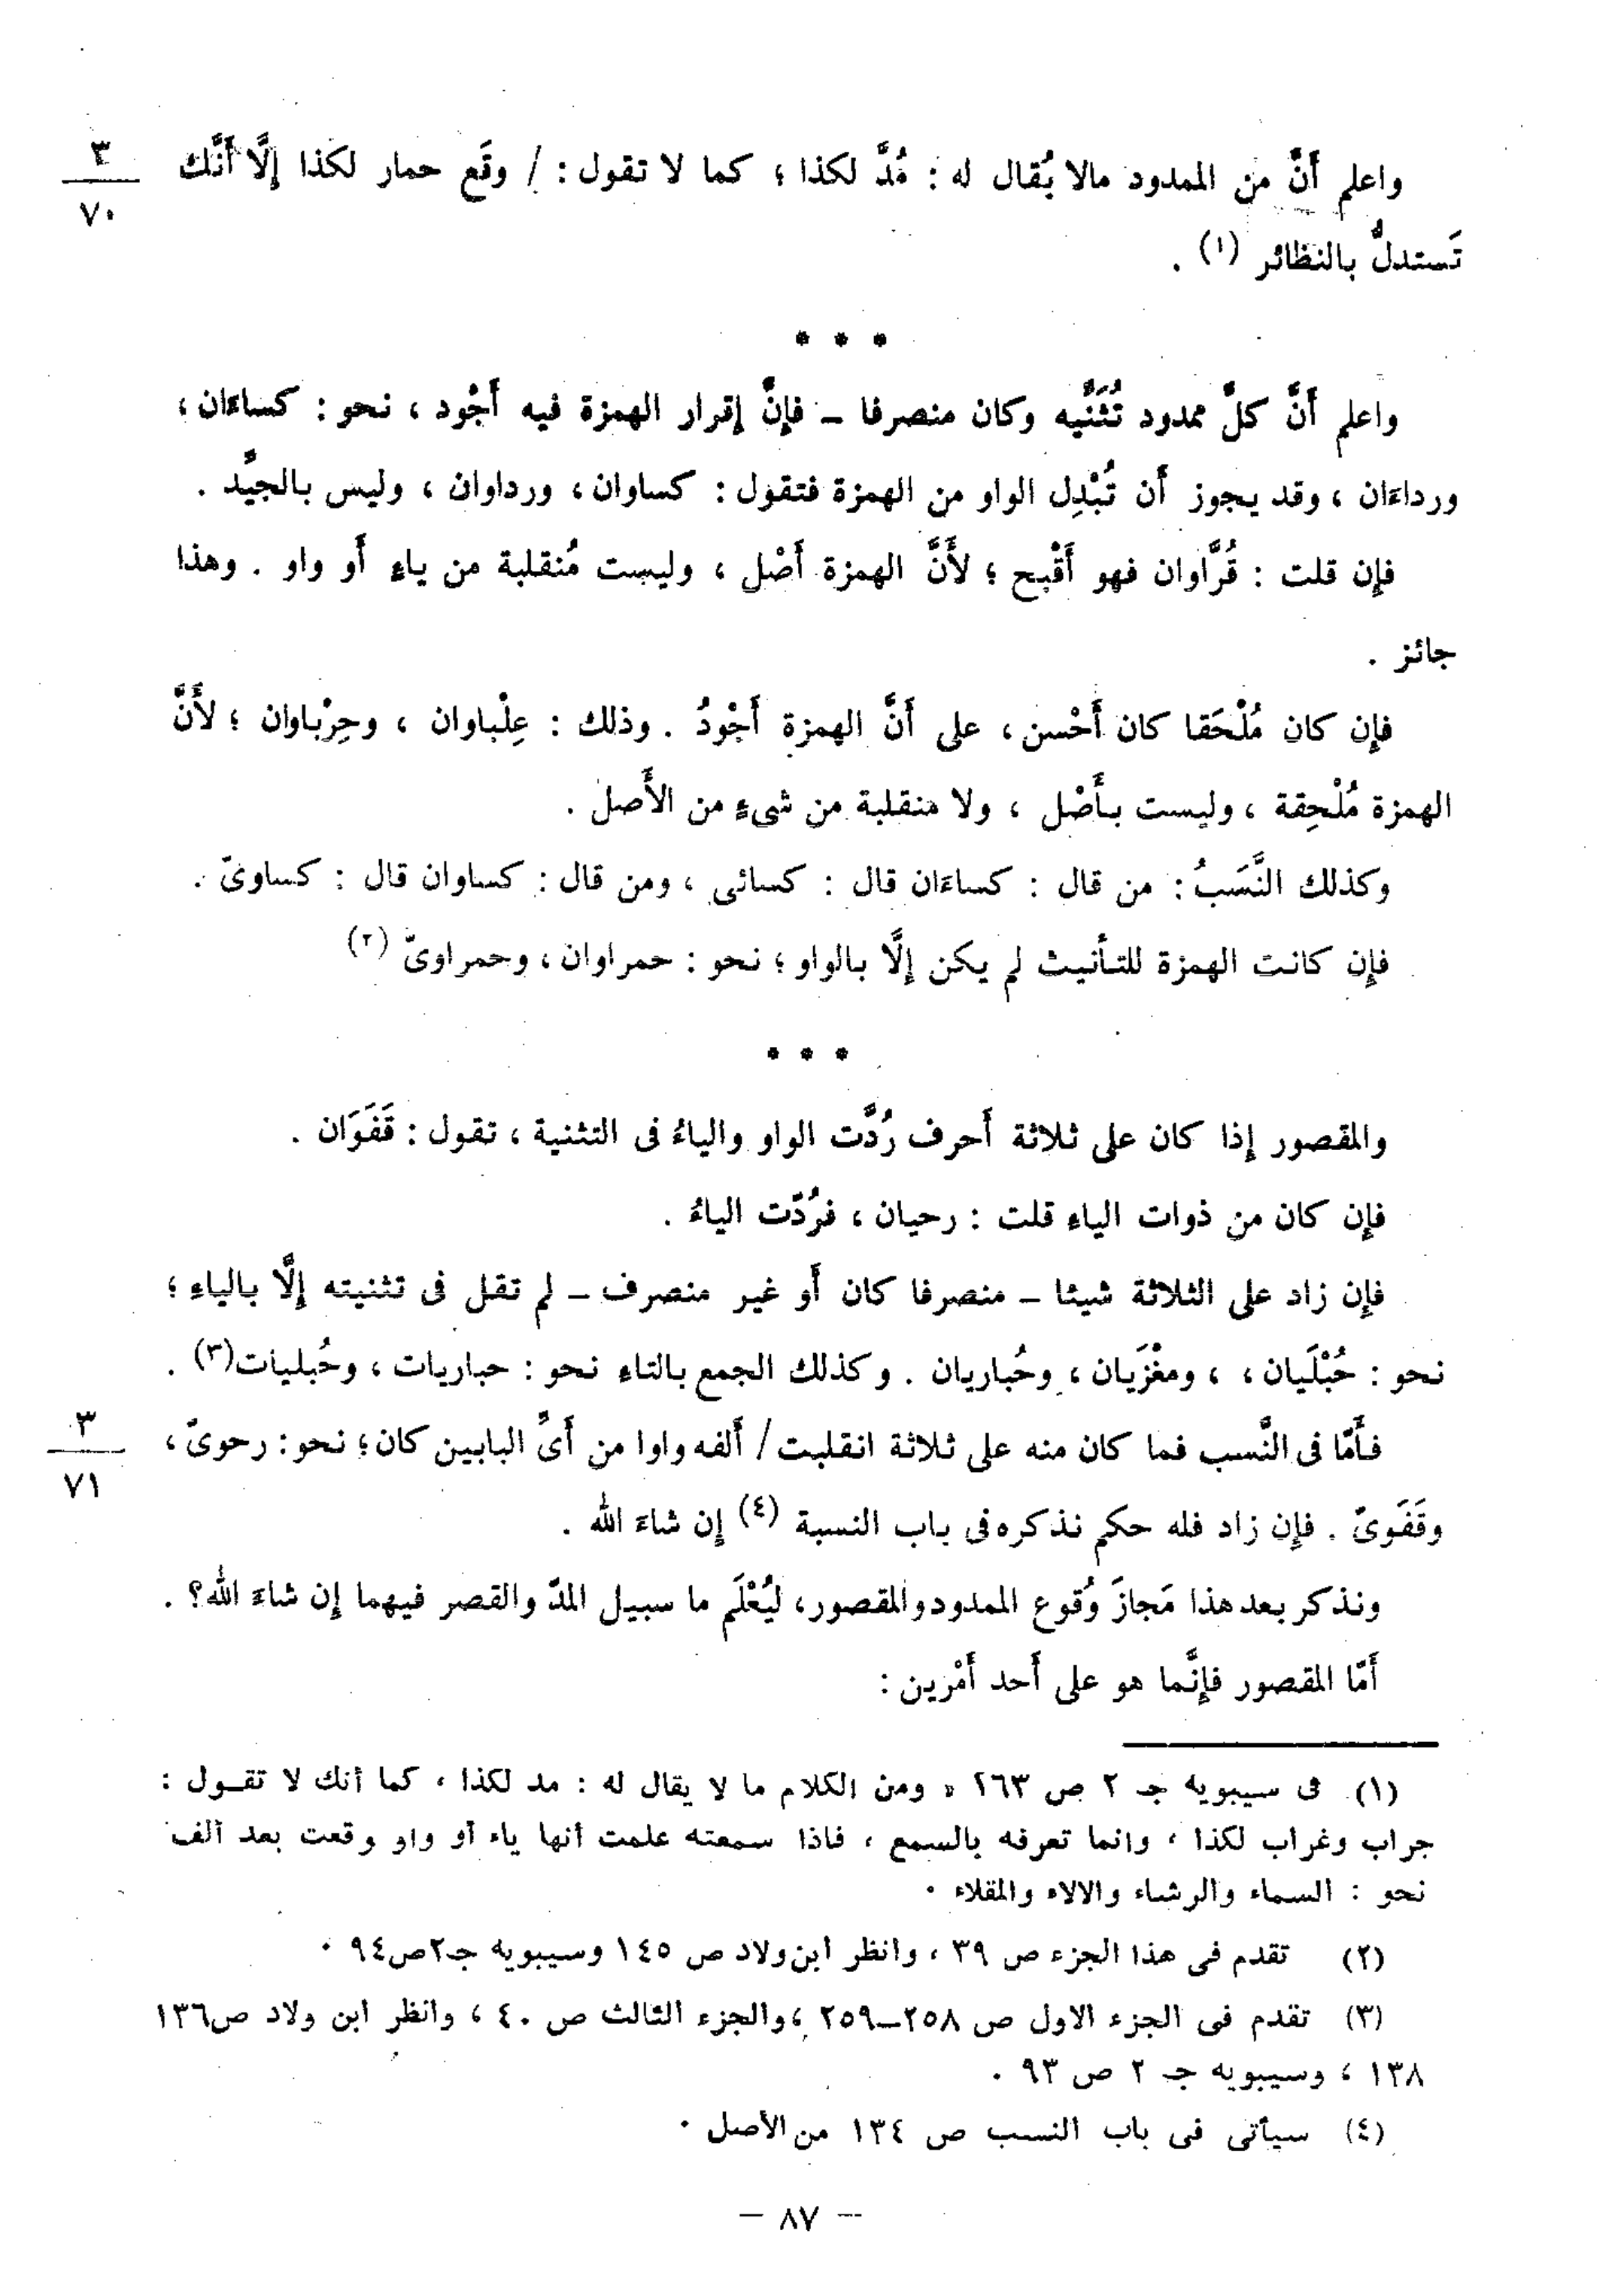 واعلم أَنَّ من الممدود مالا يُقال له : مُدَّ لكذا ؛ كما لا تقول : / وقَع حمار لكذا إِلَّا أَنَّك
٣
٧٠
تَستدلُّ بالنظائر (١) .
* * *
واعلم أَنَّ كلَّ ممدود تُثَنِّيه وكان منصرفا – فإِنَّ إقرار الهمزة فيه أَجْود ، نحو : كساءَان ،
ورداءَان ، وقد يجوز أَن تُبْدِل الواو من الهمزة فتقول : كساوان ، ورداوان ، وليس بالجيِّد .
فإِن قلت : قُرَّاوان فهو أَقْبح ؛ لأَنَّ الهمزة أَصْل ، وليست مُنقلبة من ياءٍ أَو واو . وهذا
جائز .
فإِن كان مُلْحَقا كان أَحْسن ، على أَنَّ الهمزة أَجْودُ . وذلك : عِلْباوان ، وحِرْباوان ؛ لأَنَّ
الهمزة مُلْحِقة ، وليست بأَصْل ، ولا منقلبة من شىءٍ من الأَصل .
وكذلك النَّسَبُ : من قال : كساءَان قال : كسائى ، ومن قال : كساوان قال : كساوىّ .
فإِن كانت الهمزة للتأنيث لم يكن إِلَّا بالواو ؛ نحو : حمراوان ، وحمراوىّ (٢)
* * *
والمقصور إِذا كان على ثلاثة أَحرف رُدَّت الواو والياءُ فى التثنية ، تقول : قَفَوَان .
فإِن كان من ذوات الياءِ قلت : رحيان ، فرُدّت الياءُ .
فإِن زاد على الثلاثة شيئا – منصرفا كان أَو غير منصرف – لم تقل فى تثنيته إِلَّا بالياءِ ؛
نحو : حُبْلَيان ، ، ومغْزَيان ، وحُباريان . وكذلك الجمع بالتاءِ نحو : حباريات ، وحُبليات(٣) .
فأَمّا فى النَّسب فما كان منه على ثلاثة انقلبت / أَلفه واوا من أَىِّ البابين كان ؛ نحو : رحوىّ ،
٣
٧١
وقَفَوىّ . فإِن زاد فله حكم نذكره فى باب النسبة (٤) إِن شاءَ الله .
ونذكر بعد هذا مَجازَ وُقوع الممدود والمقصور، ليُعْلَم ما سبيل المدّ والقصر فيهما إِن شاءَ الله؟ .
أَمّا المقصور فإِنَّما هو على أَحد أَمْرين :
(١) فى سيبويه جـ ٢ ص ١٦٣ « ومن الكلام ما لا يقال له : مد لكذا ، كما أنك لا تقــول :
جراب وغراب لكذا ، وانما تعرفه بالسمع ، فاذا سمعته علمت أنها ياء أو واو وقعت بعد ألف
نحو : السماء والرشاء والالاء والمقلاء .
(٢) تقدم فى هذا الجزء ص ٣٩ ، وانظر ابن ولاد ص ١٤٥ وسيبويه جـ٢ص٩٤ .
(٣) تقدم فى الجزء الاول ص ٢٥٨–٢٥٩ ، والجزء الثالث ص ٤٠ ، وانظر ابن ولاد ص١٣٦
١٣٨ ، وسيبويه جـ ٢ ص ٩٣ .
(٤) سيأتى فى باب النسب ص ١٣٤ من الأصل .
– ٨٧ –